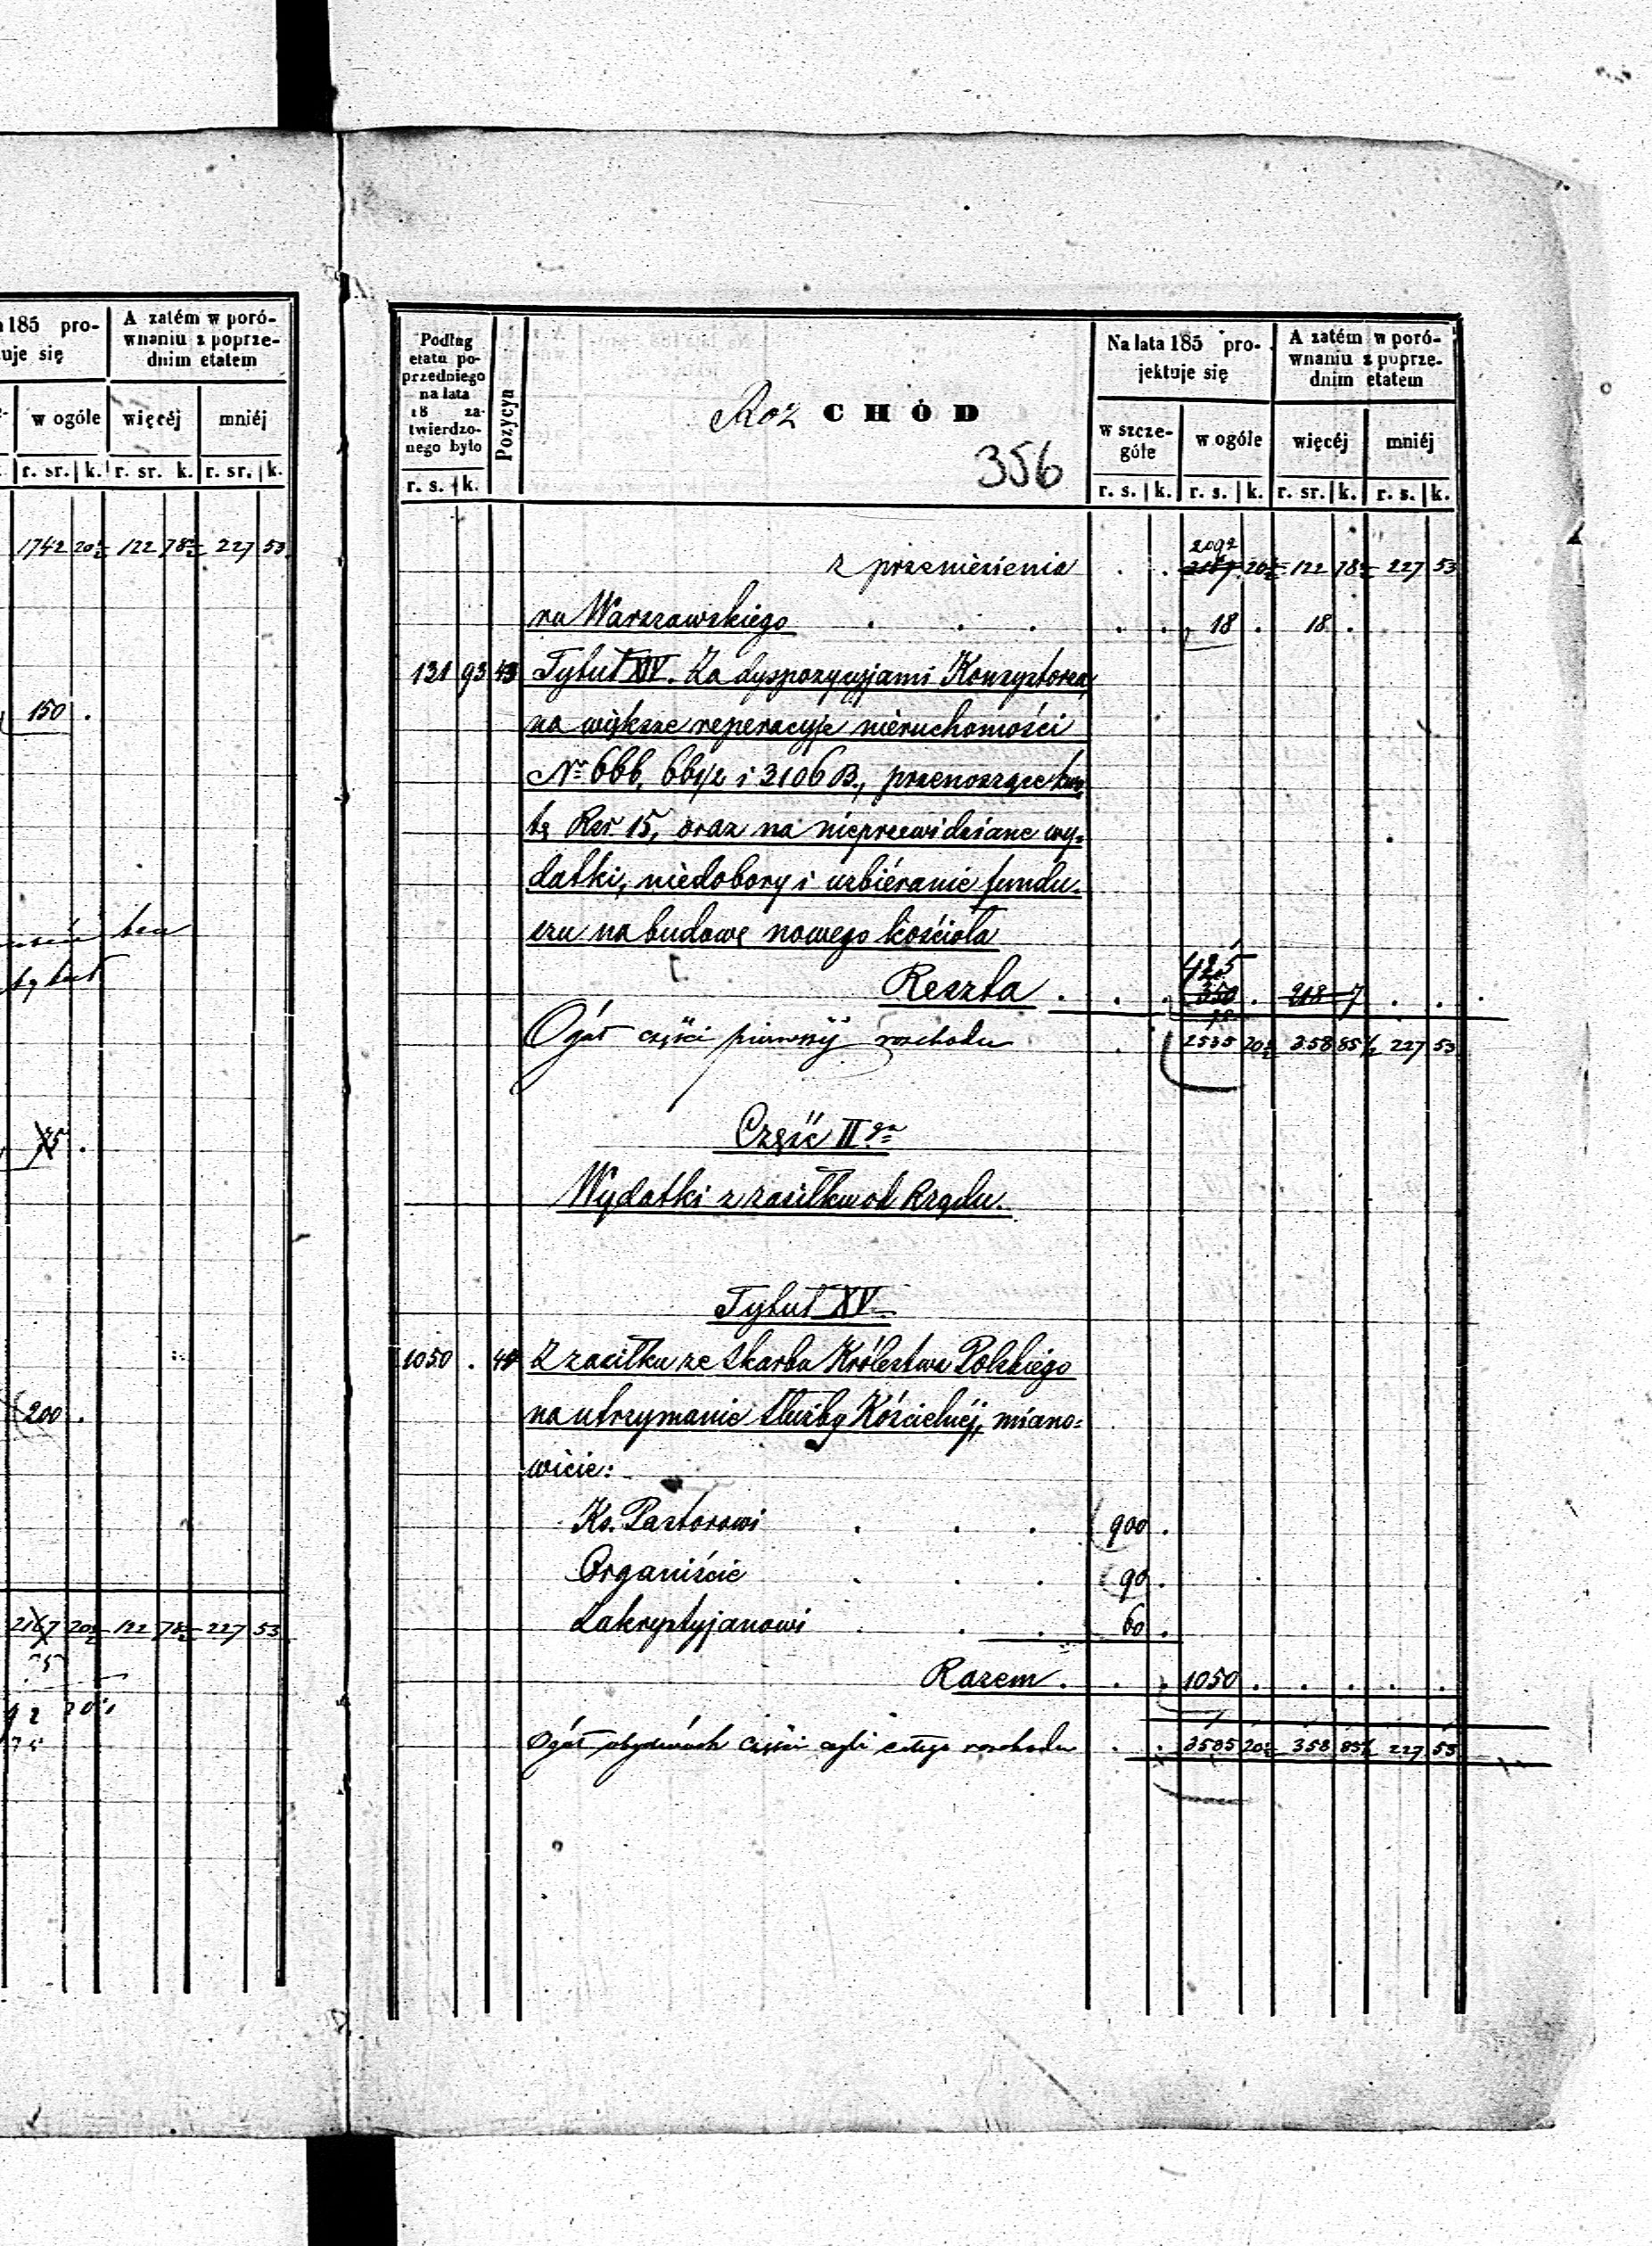 185 pro-
uje się
A zatém w poró-
wnaniu z poprze-
dnim etatem
w ogóle więcéj mniéj
r. sr. k. r. sr. k. r. sr. k.
1742 20½ 122 78½ 227 53
150 .
75 .
200 .
2167 20½ 122 78½ 227 53
75
Podług
etatu po-
przedniego
na lata
18 za-
twierdzo-
nego było
r. s. k.
Pozycya
Roz CHÓD
356
Na lata 185 pro-
jektuje się
A zatém w poró-
wnaniu z poprze-
dnim etatem
w szcze-
góle
w ogóle więcéj mniéj
r. s. k. r. s. k. r. sr. k. r. s. k.
2092
z przeniesienia . . 2167 20½ 122 78½ 227 53
ru Warszawskiego . . . . . 18 . 18 .
131 93 43 Tytuł XIV. Za dyspozycyjami Konsystorza,
na większe reperacyje nieruchomości
Nr 666, 661/2 i 3106 B., przenoszące kwo,
tę Rsr 15, oraz na nieprzewidziane wy=
datki, niedobory i uzbiéranie fundu-
szu na budowę nowego kościoła
425
Reszta . . . 350 . 218 7 . . .
Ogół części pierwszéj rozchodu . 2535 20½ 358 85½ 227 53
Część II ga
Wydatki z zasiłku od Rządu.
Tytuł XV
1050 . 44 Z zasiłku ze Skarbu Królestwa Polskiégo
na utrzymanie Służby Kościelnéj, miano=
wicie:
Ks. Pastorowi . . . 900 .
Organiście . . . 90 .
Zakrystyjanowi . . . 60 .
Razem . . . 1050 . . . . .
Ogół obydwóch części czyli całego rozchodu . . 3585 20½ 358 85½ 227 53